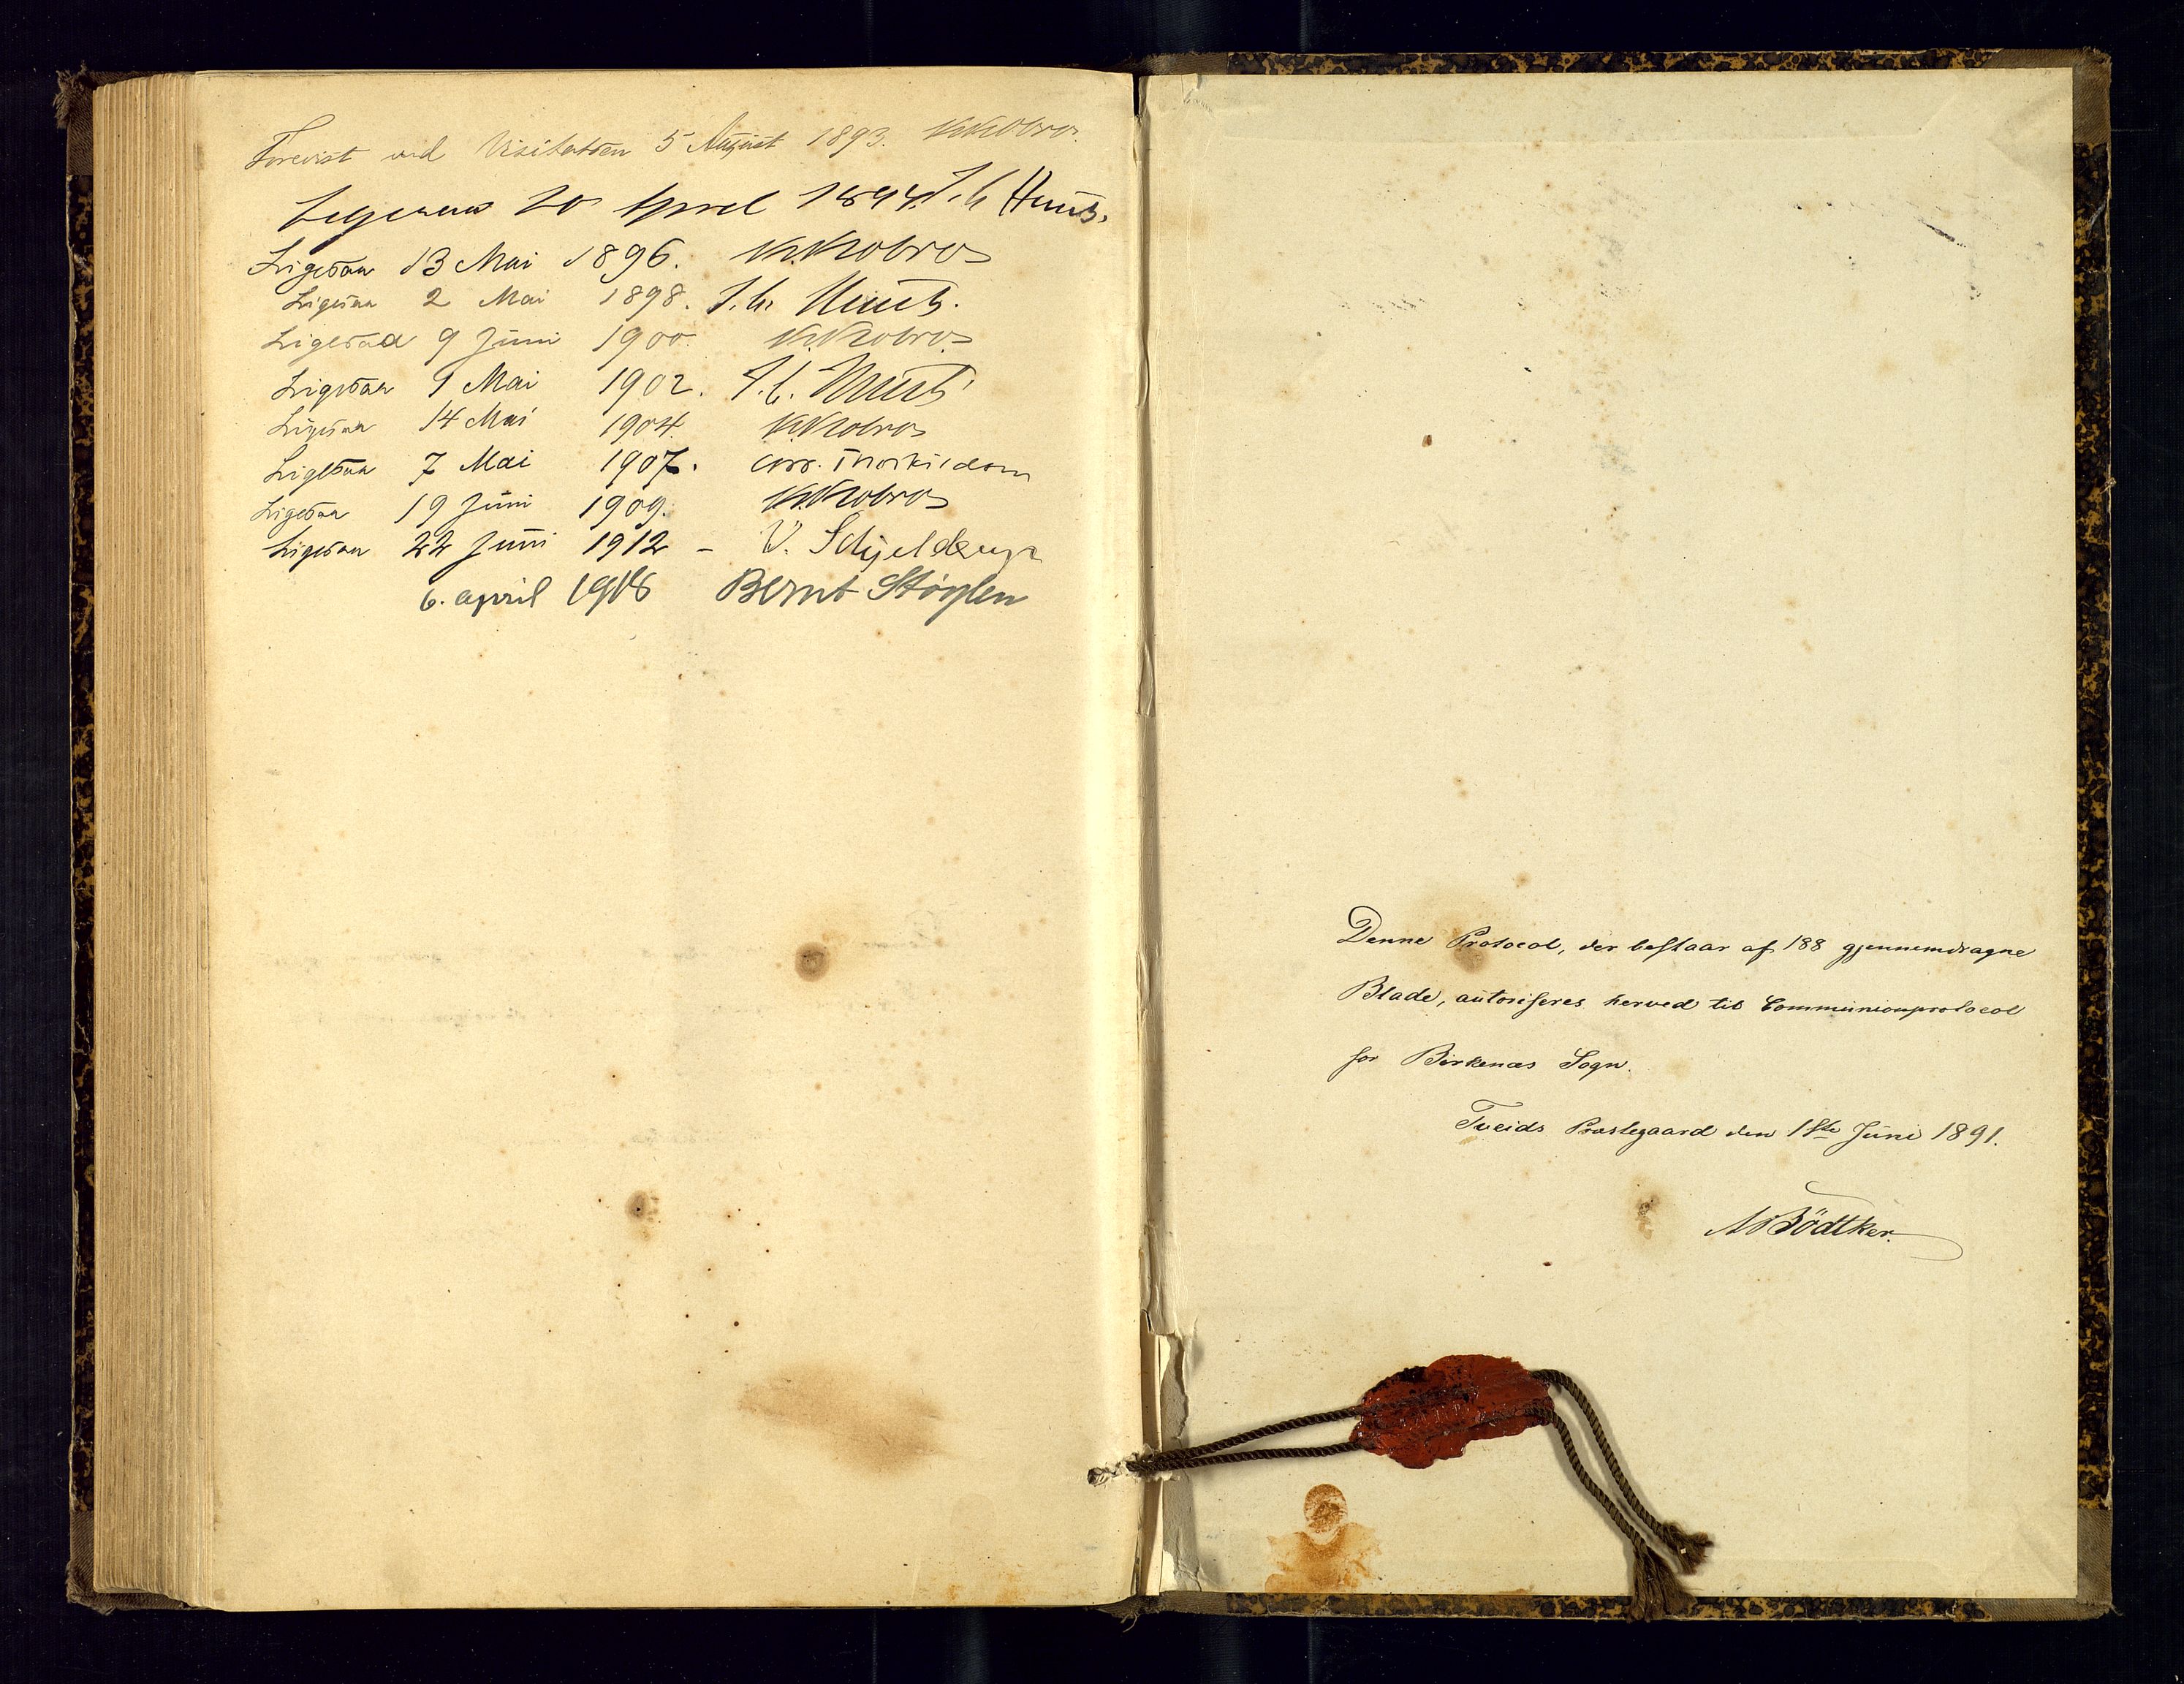 Forevist ved Visitatsen 5 August 1893.
20 April 1894. Heuch.
Ligesaa 13 Mai 1896.
Ligesaa 2 Mai 1898. J. C. Heuch.
Ligesaa 9 Juni 1900.
Ligesaa 1 Mai 1902. J. C. Heuch
Ligesaa 14 Mai 1904.
Ligesaa 7 Mai 1907. Chr. Thorkildsen
Ligesaa 19 Juni 1909.
Ligesaa 22 Juni 1912 – V. Schjelderup
6. april 1918 Bernt Støylen
Denne Protocol, der bestaar af 188 gjennemdragne
Blade, autoriseres herved til Communionprotocol
for Birkenæs Sogn.
Tveids Præstegaard den 1ste Juni 1891.
Bödtker.